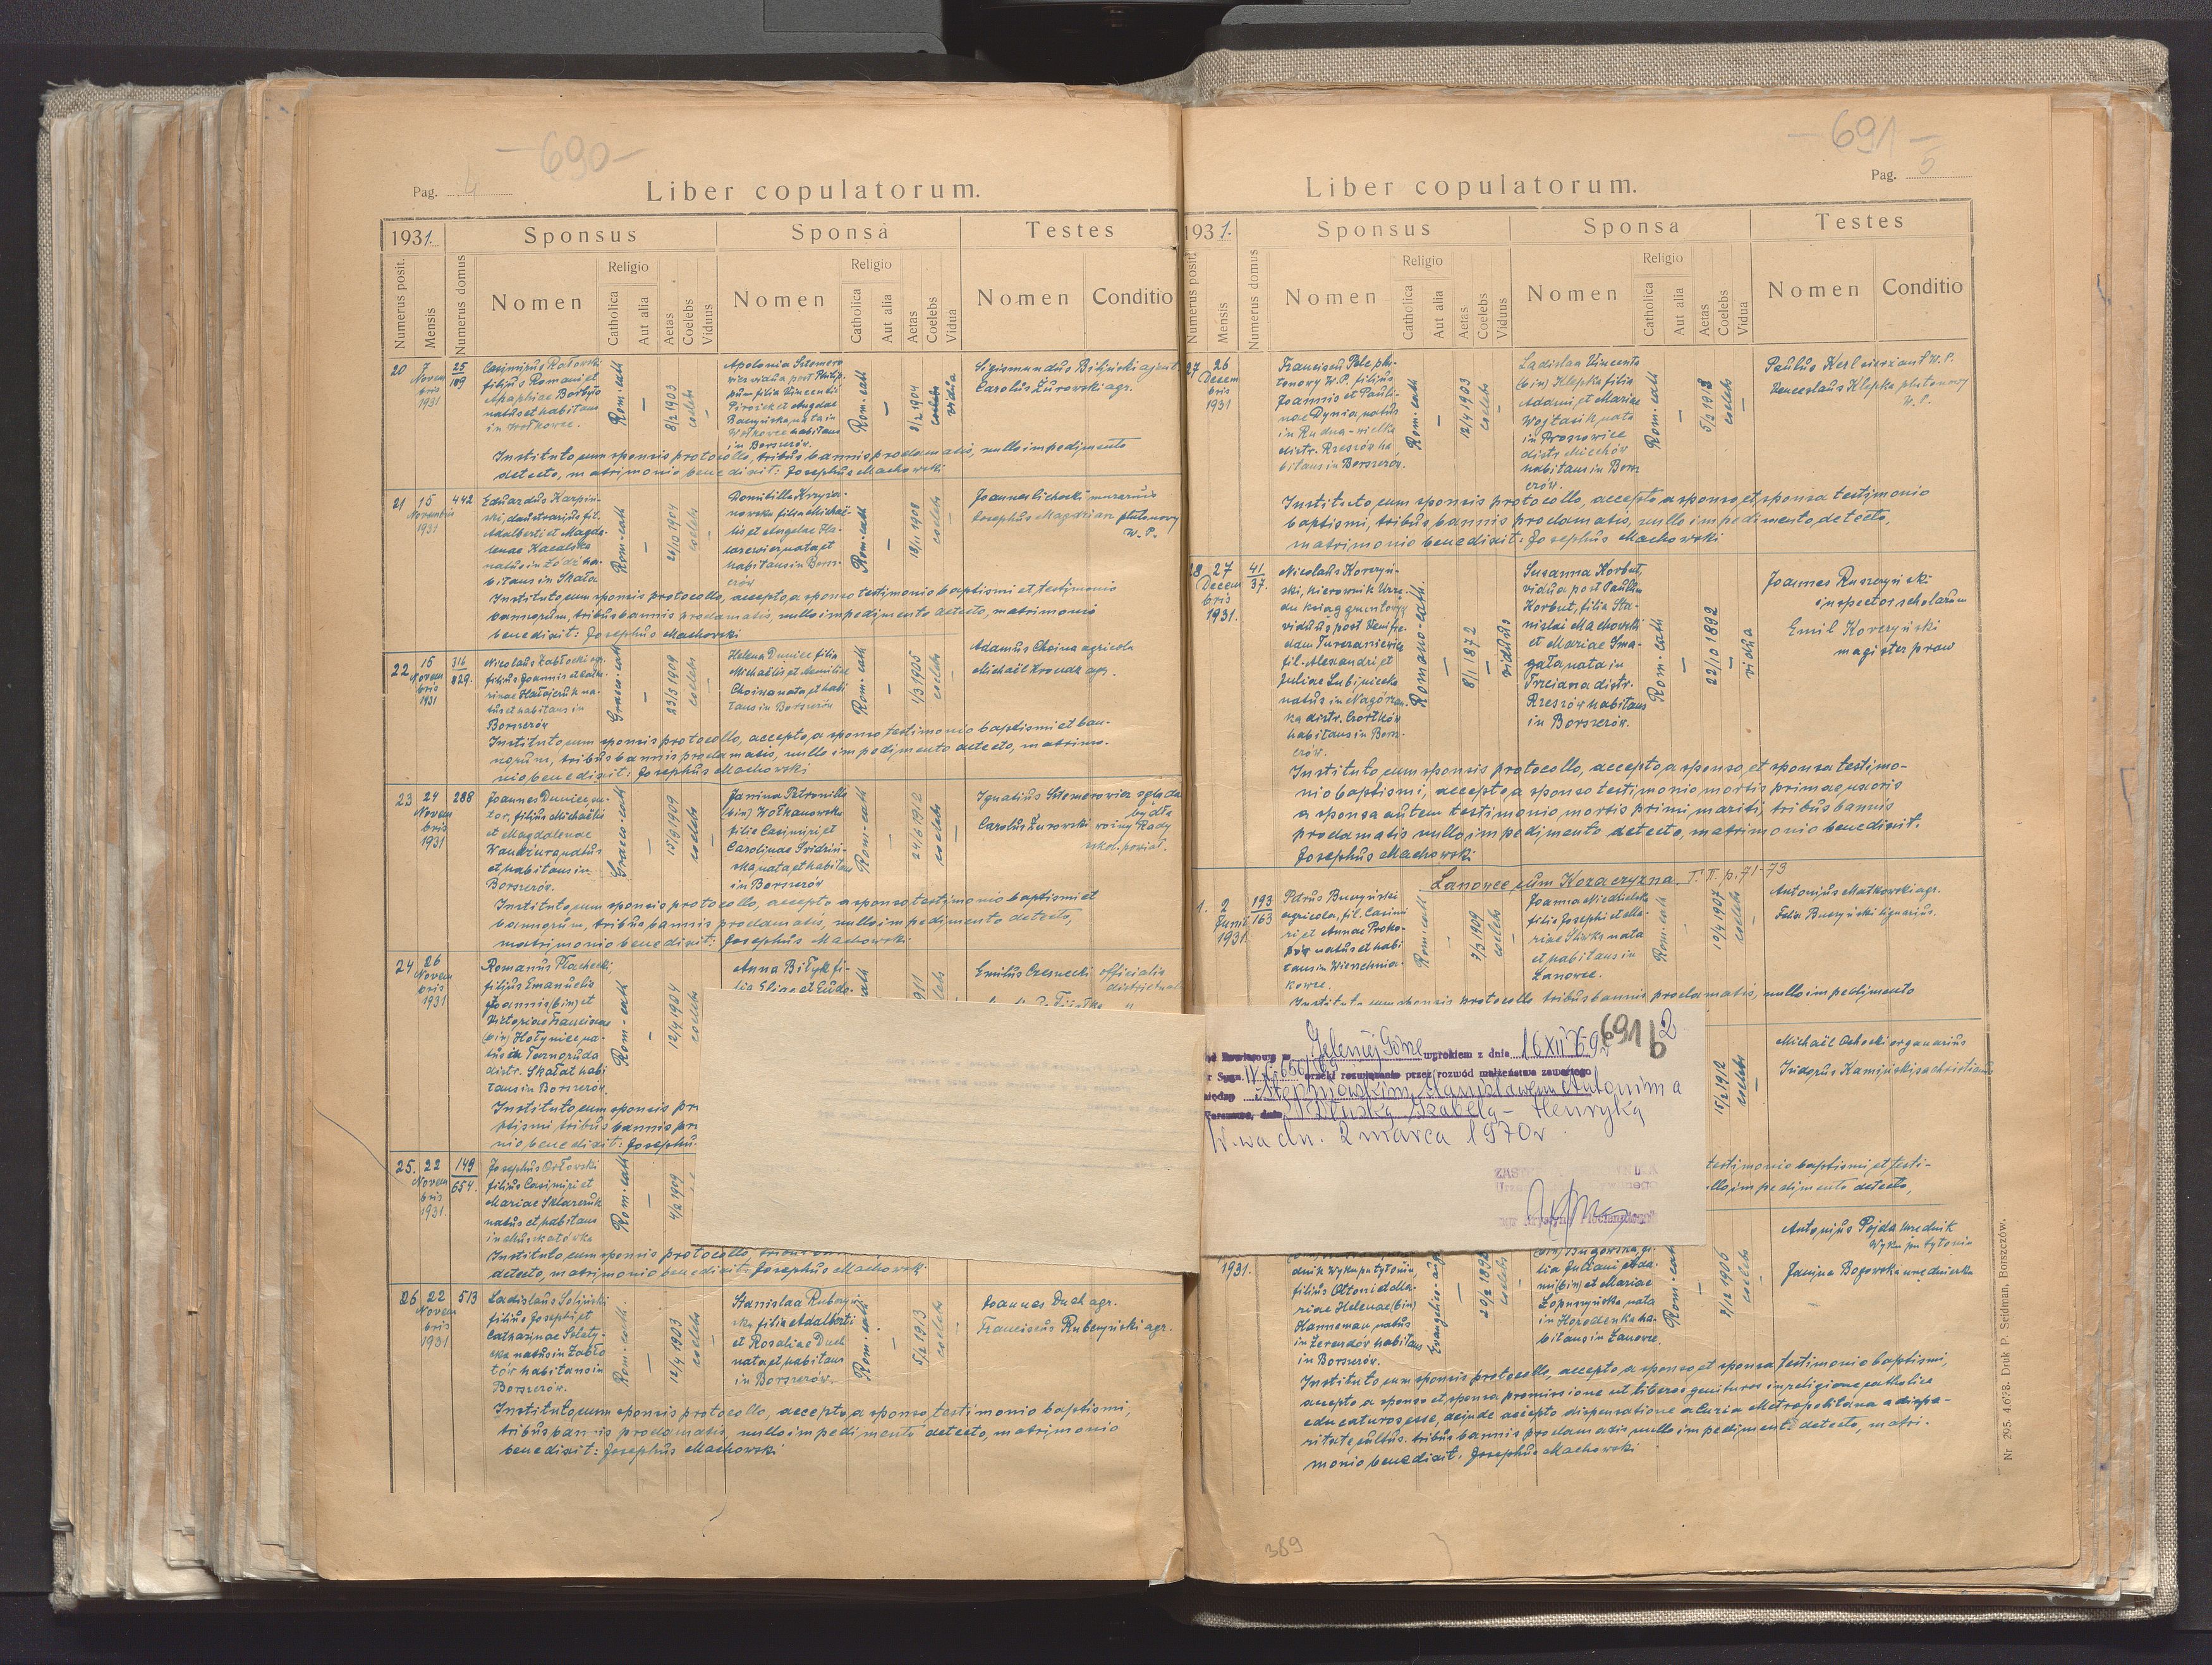 — 690 —
Pag.
Liber copulatorum.
1931.
Sponsus
Sponsa
Testes
Numerus posit.
Mensis
Numerus domus
Nomen
Religio
Catholica
Aut alia
Aetas
Coelebs
Viduus
Nomen
Religio
Catholica
Aut alia
Aetas
Coelebs
Vidua
Nomen
Conditio
20
7
Novem
bris
1931
25
189
Casimirus
filius Romani et
natus et habitans
in Wołkowce.
Rom.-cath
—
8/2 1903
coelebs
—
Apolonia Szlemero
wicz vidua post Philip-
pum filia Vincentii
Pirożek et Magdae
Buczyńska nata in
Wołkowce habitans
in Borszczów.
Rom.-cath
—
8/2 1904
coelebs
vidua
Sigismundus Biliński agent
Carolus Żurowski agr.
Instituto cum sponsis protocollo, tribus bannis proclamatis, nullo impedimento
detecto, matrimonio benedixit: Josephus Machowski
21
15
Novembris
1931
442
Eduardus Karpiń-
ski, filius
Adalberti et Magda-
lenae
natus in Łódź ha-
bitans in Skała
Rom.-cath
—
26/10 1904
coelebs
—
Domitilla Krzyża-
nowska filia Michae-
lis et Angelae Ha-
larewicz nata et
habitans in Borsz-
czów
Rom.-cath
—
18/11 1908
coelebs
—
Joannes Cichocki murarius
Josephus Magdzian plutonowy
W.P.
Instituto cum sponsis protocollo, accepto a sponso testimonio baptismi et testimonio
bannorum, tribus bannis proclamatis, nullo impedimento detecto, matrimonio
benedixit: Josephus Machowski
22
15
Novem
bris
1931
316
829.
Nicolaus Zabłocki agr.
filius Joannis et Catha-
rinae Hałajczuk na-
tus et habitans in
Borszczów
Graeco-cath
—
23/5 1908
coelebs
—
Helena Dunice filia
Michaelis et Aemiliae
Choina nata et habi
tans in Borszczów
Rom.-cath
—
1/3 1905
coelebs
—
Adamus Choina agricola
Michaël Kronda agr.
Instituto cum sponsis protocollo, accepto a sponso testimonio baptismi et ban-
norum, tribus bannis proclamatis, nullo impedimento detecto, matrimo-
nio benedixit: Josephus Machowski
23
24
Novem
bris
1931
288
Joannes Dunice, su-
tor, filius Michaelis
et Magdalenae
Wandżura natus
et habitans in
Borszczów.
Graeco-cath
—
15/8 1909
coelebs
—
Janina Petronilla
(bin) Wołkanowska
filia Casimiri et
Carolinae Svidziń-
ska, nata et habitans
in Borszczów
Rom.-cath
—
24/6 1912
coelebs
—
Ignatius Szlemerowicz ogląda
bydła
Carolus Żurowski woźny Rady
szkol. powiat.
Instituto cum sponsis protocollo, accepto a sponso testimonio baptismi et
bannorum, tribus bannis proclamatis, nullo impedimento detecto,
matrimonio benedixit: Josephus Machowski
24
26
Novem
bris
1931
Romanus Płachecki,
filius Emanuelis
Joannis (bin) et
Victoriae Franciscae
(bin) Hołynice, na-
tus in Tarnoruda
distr. Skałat habi
tans in Borszczów.
Rom.-cath
—
12/4 1904
coelebs
Anna Biłyk fi-
lia Eliae et Eudo-
911
Emilus Czernecki officialis
districtualis
Instituto cum sponsis pr
ptismi tribus bannis pr
nio benedixit: Josephu
25.
22
Novem
bris
1931.
149
654.
Josephus Orłowski
filius Casimiri et
Mariae Sklarczuk
natus et habitans
in Muszkatówka
Rom.-cath
—
4/2 1909
Instituto cum sponsis protocollo, tribus
detecto, matrimonio benedixit: Josephus Machowski
26
22
Novem
bris
1931
513
Ladislaus Soliński
filius Josephi et
Catharinae Solaty-
cka natus in Zabło
tów habitans in
Borszczów.
Rom.-cath.
—
12/4 1903
coelebs
—
Stanislaa Rubczyń-
ska filia Adalberti
et Rosaliae Duch
nata et habitans
in Borszczów.
Rom.-cath.
—
5/2 1913
coelebs
—
Joannes Duch agr.
Franciscus Rubczyński agr.
Instituto cum sponsis protocollo, accepto a sponso testimonio baptismi,
tribus bannis proclamatis, nullo impedimento detecto, matrimonio
benedixit: Josephus Machowski
— 691 —
Pag. 5
Liber copulatorum.
1931.
Sponsus
Sponsa
Testes
Numerus posit.
Mensis
Numerus domus
Nomen
Religio
Catholica
Aut alia
Aetas
Coelebs
Viduus
Nomen
Religio
Catholica
Aut alia
Aetas
Coelebs
Vidua
Nomen
Conditio
27
26
Decem
bris
1931
Franciscus Pale plu-
tonowy W.P. filius
Joannis et Pauli-
nae Dynia, natus
in Rudna-wielka
distr. Rzeszów ha
bitans in Borszczów.
Rom.-cath
—
12/4 1903
coelebs
—
Ladislaa Vincenta
(bin) Klepka filia
Adami et Mariae
Wojtasik, nata
in Proszowice
distr. Miechów
habitans in Borsz
czów.
Rom.-cath
—
5/2 1913
coelebs
—
Paulus Kesl sierżant W.P.
Venceslaus Klepka plutonowy
W.P.
Instituto cum sponsis protocollo, accepto a sponso et sponsa testimonio
baptismi, tribus bannis proclamatis, nullo impedimento detecto,
matrimonio benedixit: Josephus Machowski
28
27
Decem
bris
1931.
41
37.
Nicolaus Korczyń-
ski, kierownik Urzę-
du ksiąg gruntowych
viduus post Venefre-
dam Turczaniewicz
fil. Alexandri et
Juliae Lubieniecka
natus in Nagórzan-
ka distr. Czortków
habitans in Borsz-
czów.
Romano-cath.
—
8/1 1872
—
viduus
Susanna Korbut,
vidua post Paulum
Korbut, filia Sta-
nislai Machowski
et Mariae Sma-
gała nata in
Trzciana distr.
Rzeszów habitans
in Borszczów.
Rom.-cath
—
22/10 1892
—
vidua
Joannes Ruszczyński
inspector scholarum
Emil Korczyński
magister praw
Instituto cum sponsis protocollo, accepto a sponso et sponsa testimo-
nio baptismi, accepto a sponso testimonio mortis primae uxoris
a sponsa autem testimonio mortis primi mariti, tribus bannis
proclamatis nullo impedimento detecto, matrimonio benedixit.
Josephus Machowski
Lanowce cum Kozaczyzna. T. II. p. 71-73
1.
2
Junii
1931
193
163
Petrus Buczyński
agricola, fil. Casimi
ri et Annae Proko-
natus et habi
tans in Wierzchnia-
kowce.
Rom.-cath
—
7/3 1909
coelebs
—
Joanna Niedzielska
filia Josephi et Ma-
riae Sliwka nata
et habitans in
Lanowce.
Rom.-cath
—
10/4 1907
coelebs
—
Antonius Matkowski agr.
Felix Buczyński lignarius.
Instituto cum sponsis protocollo tribus bannis proclamatis, nullo impedimento
15/2 1912
coelebs
—
Michaël Cichocki organarius
Isidorus Kamiński sachristianus
testimonio baptismi et testi-
llo impedimento detecto,
691 b 2
Jeleniej Górze wyrokiem z dnia 16 XII 69 r
r Sygn. IV C 650/69 orzekł rozwiązanie przez rozwód małżeństwa zawartego
między Stępniowskim Stanisławem Antonim a
Warszawa, dnia Izabelą - Henryką
W-wa dn. 2 marca 1970 r.
1931.
dnik Wykupu tytoniu,
filius Ottoni et Ma-
riae Helenae (bin)
Hanneman, natus
in Zerendór habitans
in Borszczów.
Evangelico-aug
—
20/2 1892
coelebs
—
(bin) Bugowska fi-
lia Juliani et Ada-
mi (bin) et Mariae
Łopuszyńska nata
in Horodenka ha-
bitans in Lanowce.
Rom.-cath
—
8/12 1906
coelebs
—
Antonius Pojda urzędnik
Wykupu tytoniu
Janina Bogowska urzędniczka
Instituto cum sponsis protocollo, accepto a sponso et sponsa testimonio baptismi,
accepto a sponso et sponsa promissione ut liberos genituros in religione catholica
educaturos esse, deinde accepto dispensatione a Curia Metropolitana a dispa-
ritate cultus. tribus bannis proclamatis nullo impedimento detecto, matri-
monio benedixit. Josephus Machowski
389
Nr 295. 4.673. Druk P. Seidman, Borszczów.